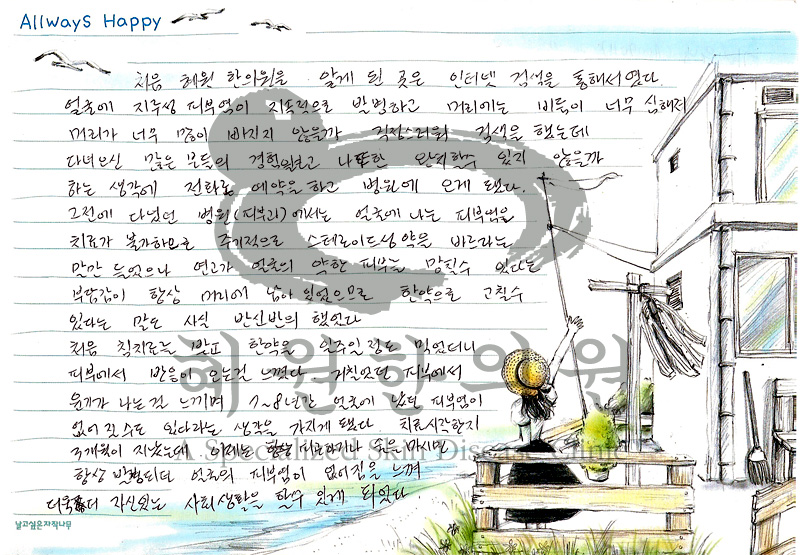 Allways Happy
처음 혜원 한의원을 알게 된 곳은 인터넷 검색을 통해서였다.
얼굴에 지루성 피부염이 지속적으로 발병하고 머리에는 비듬이 너무 심해져
머리가 너무 많이 빠지지 않을까 걱정스러워 검색을 했는데
다녀오신 많은 분들의 경험을보고 나또한 완치할수 있지 않을까
하는 생각에 전화로 예약을 하고 병원에 오게 됐다.
그전에 다녔던 병원(피부과)에서는 얼굴에 나는 피부염을
치료가 불가하므로 주기적으로 스테로이드성 약을 바르라는
말만 들었으나 연고가 얼굴의 약한 피부를 망칠수 있다는
부담감이 항상 머리에 남아 있었으므로 한약으로 고칠수
있다는 말도 사실 반신반의 했었다
처음 침치료를 받고 한약을 일주일 정도 먹었더니
피부에서 반응이 오는걸 느꼈다. 거칠었던 피부에서
윤기가 나는걸 느끼며 7~8년간 얼굴에 났던 피부염이
없어질수도 있다라는 생각을 가지게 됐다. 치료시작한지
3개월이 지났는데 이제는 항상 피곤하거나 술을 마시면
항상 발병되던 얼굴의 피부염이 없어짐을 느껴
더욱더 자신있는 사회생활을 할수 있게 되었다.
혜원한의원
A Specialized Skin Disease Clinic
날고싶은자작나무